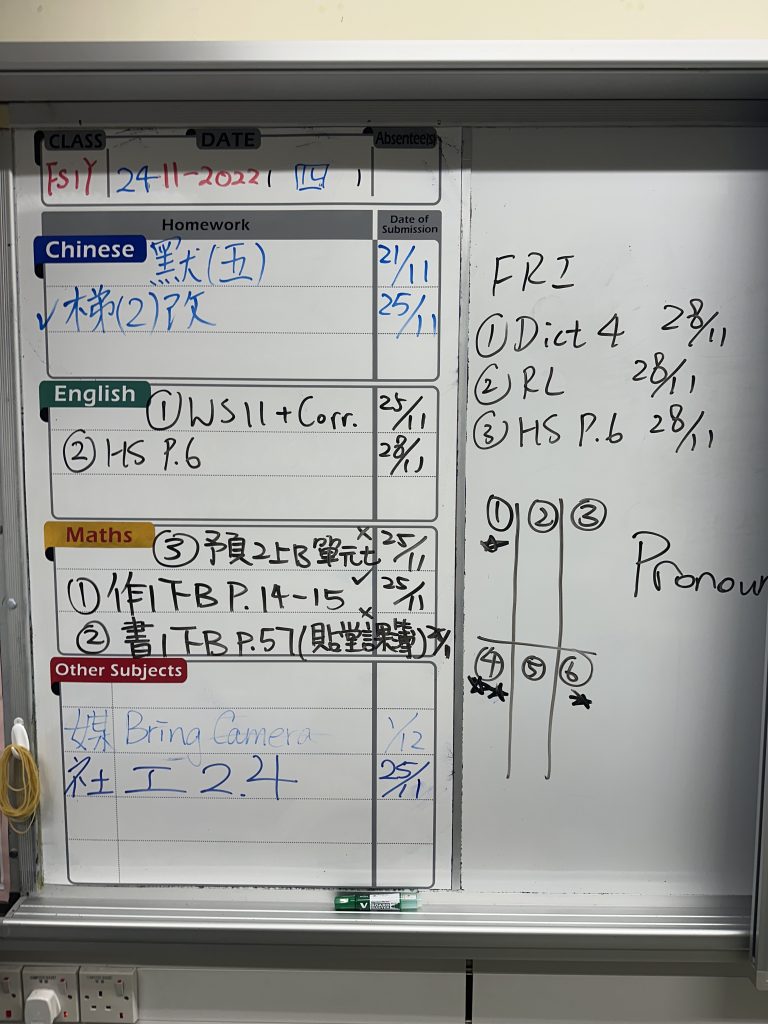 CLASS DATE Absentee(s)
FS1Y 24-11-2022 ( 四 )
Homework Date of Submission
Chinese 默(五) 21/11
✓梯(2)改 25/11
English ① WS 11 + Corr. 25/11
② HS P.6 28/11
Maths ③ 預2上B單元七 × 25/11
① 作1下B P.14-15 ✓ 25/11
② 書1下B P.57(貼堂課簿) ×
Other Subjects
媒 Bring Camera 1/12
社 工2.4 25/11
FRI
① Dict 4 28/11
② RL 28/11
③ HS P.6 28/11
① ② ③
★
Pronoun
④ ⑤ ⑥
★★ ★